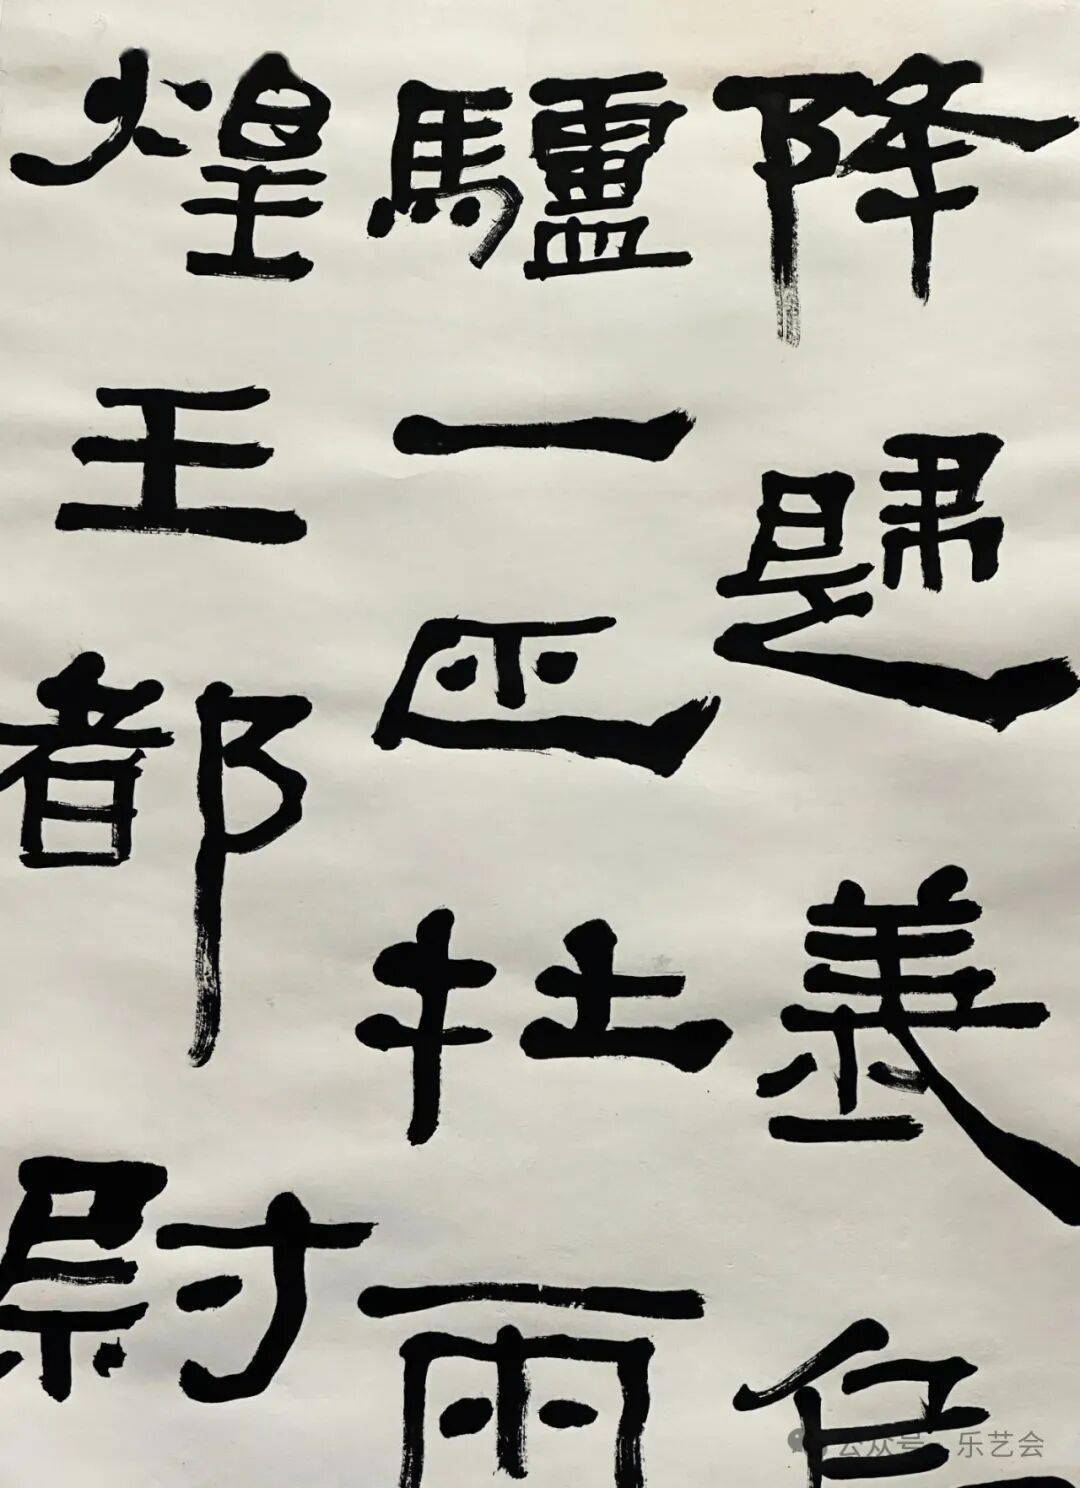 降歸義烏
驢一匹牡兩
煌王都尉
公众号·乐艺会